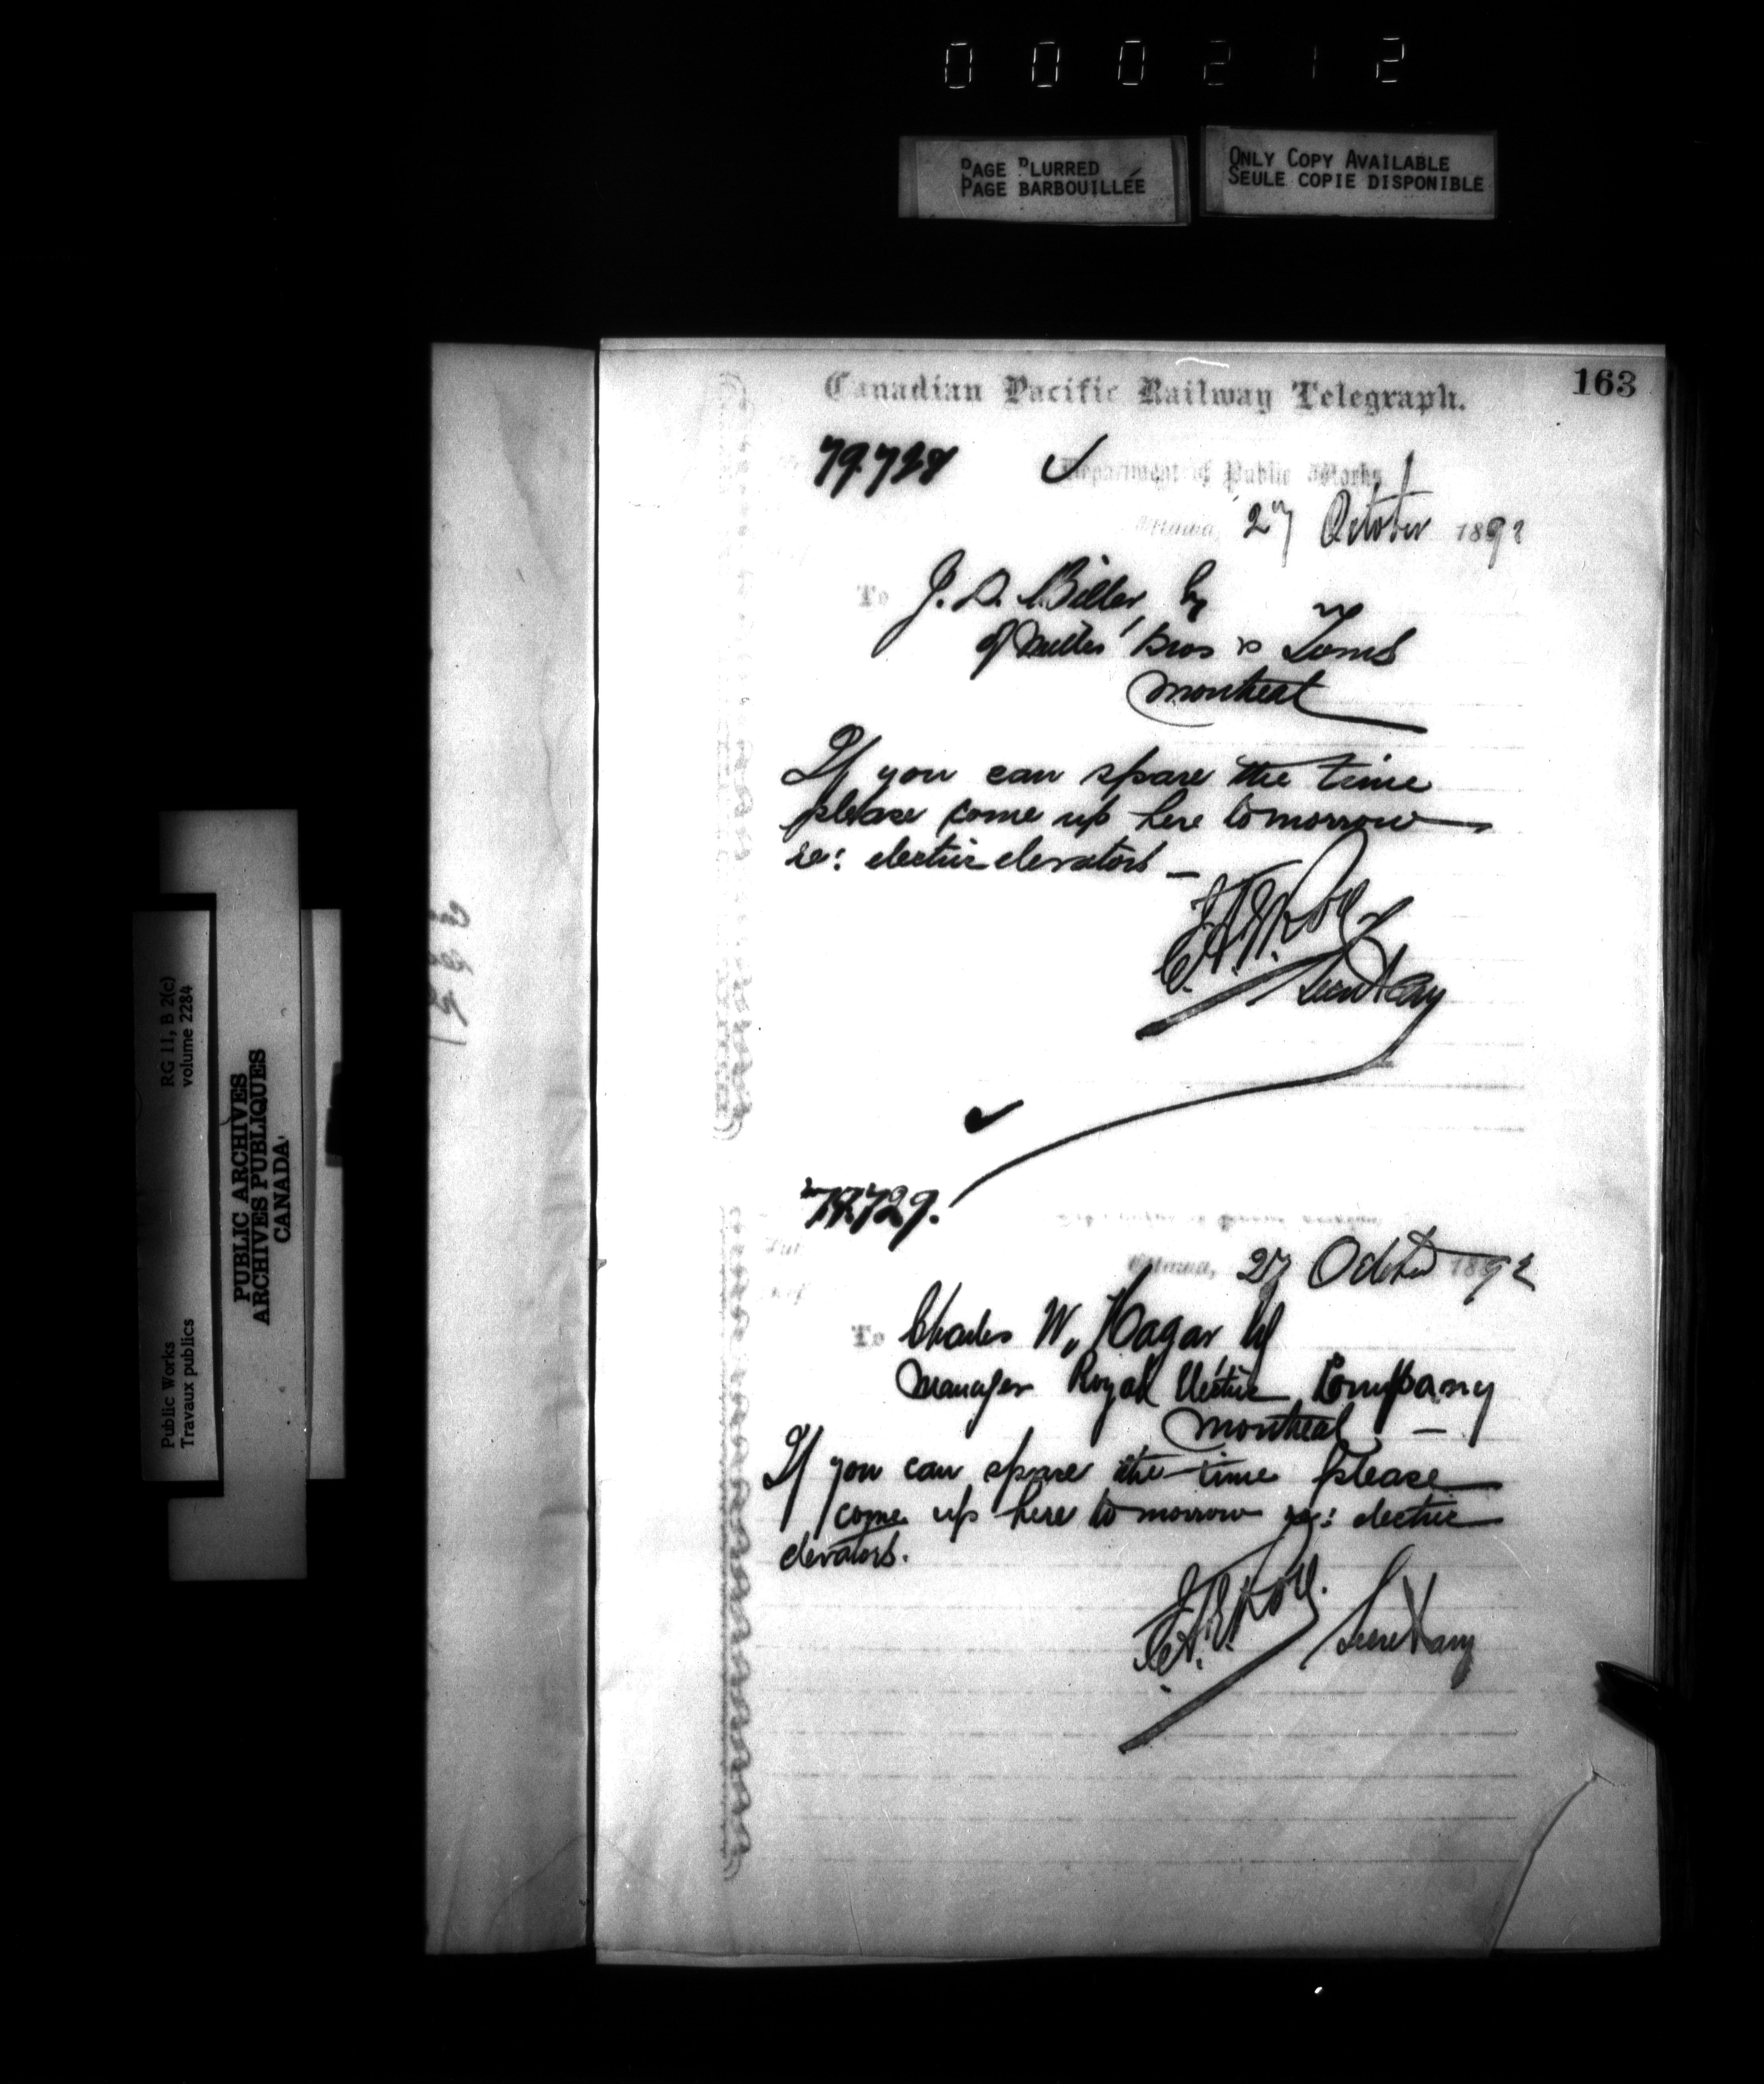 000212
PAGE BLURRED
PAGE BARBOUILLÉE
ONLY COPY AVAILABLE
SEULE COPIE DISPONIBLE
163
Canadian Pacific Railway Telegraph.
79728
Department of Public Works
Ottawa, 27 October 1892
To J. D. Miller, Esq
of Miller Bros & Toms
Montreal
If you can spare the time
please come up here tomorrow
re: electric elevators —
E.F.E. Roy
Secretary
79729.
Ottawa, 27 October 1892
To Charles W. Hagar Esq
Manager Royal Electric Company
Montreal —
If you can spare the time please
come up here tomorrow re: electric
elevators.
E.F.E. Roy. Secretary
RG 11, B 2(c)
volume 2284
Public Works
Travaux publics
PUBLIC ARCHIVES
ARCHIVES PUBLIQUES
CANADA